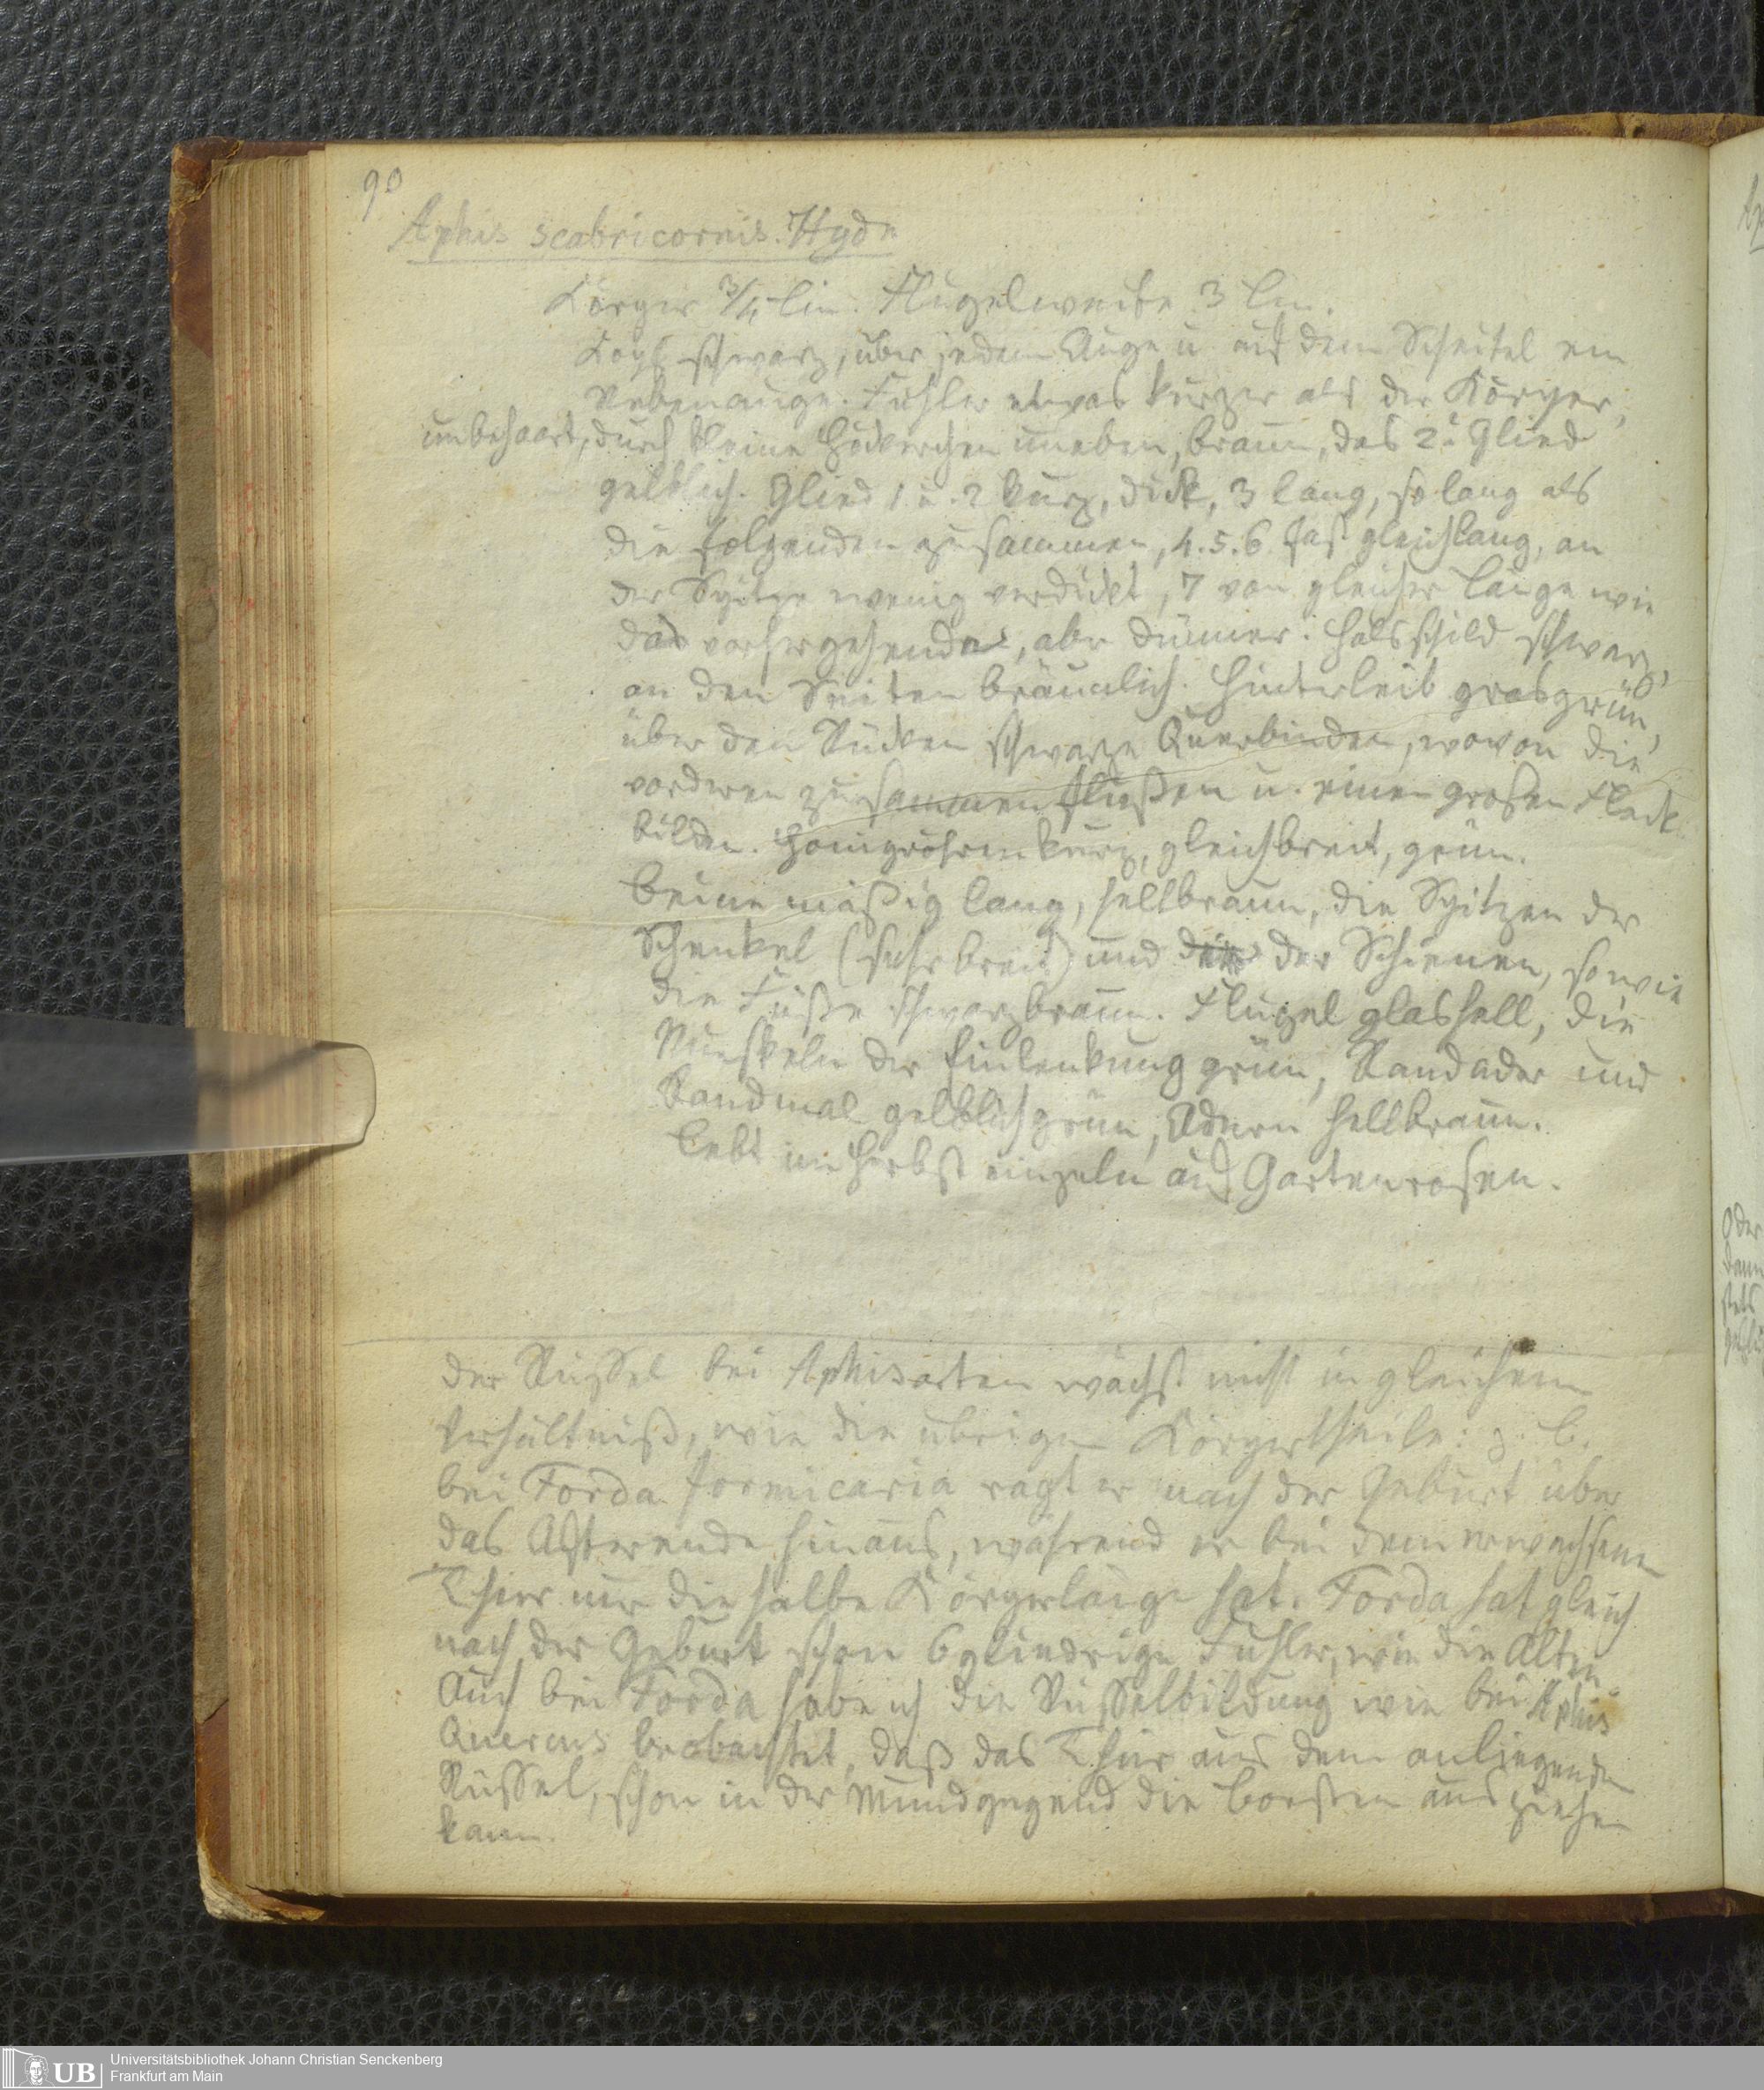 90
Aphis scabricornis. Hydn
Körper 3/4 lin. Flügelweite 3 lin.
Kopf schwarz, über jedem Auge u. auf dem Scheitel ein
Nebenauge. Fühler etwas kürzer als der Körper,
unbehaart, durch kleine Höckerchen uneben, braun, das 2.te Glied
gelblich. Glied 1 u. 2 kurz, dick, 3 lang, so lang als
die folgenden zusammen, 4. 5. 6 fast gleichlang, an
der Spitze wenig verdickt, 7 von gleicher Länge wie
das vorhergehende, aber dünner. Halsschild schwarz,
an den Seiten bräunlich. Hinterleib grasgrün,
über den Rücken schwarze Querbinden, wovon die
vorderen zusammenfließen u. einen großen Fleck
bilden. Honigröhren kurz, gleichbreit, grün.
Beine mäßig lang, hellbraun, die Spitzen der
Schenkel (sehr breit) und der Schienen, sowie
die Füße schwarzbraun. Flügel glashell, die
Muskeln der Einlenkung grün, Randader und
Randmal gelblichgrün, Adern hellbraun.
Lebt im Herbst einzeln auf Gartenrosen.
Der Rüssel bei Aphisarten wächst nicht in gleichem
Verhältniß, wie die übrigen Körpertheile: z. B.
bei Forda formicaria ragt er nach der Geburt über
das Afterende hinaus, während er bei dem erwachsenen
Thier nur die halbe Körperlänge hat. Forda hat gleich
nach der Geburt schon 6gliedrige Fühler, wie die Alten.
Auch bei Forda habe ich die Rüsselbildung wie bei Aphis
Quercus beobachtet, daß das Thier aus dem anliegenden
Rüssel, schon in der Mundgegend die Borsten ausziehen
kann.
Oder
dann
stets
UB
Universitätsbibliothek Johann Christian Senckenberg
Frankfurt am Main